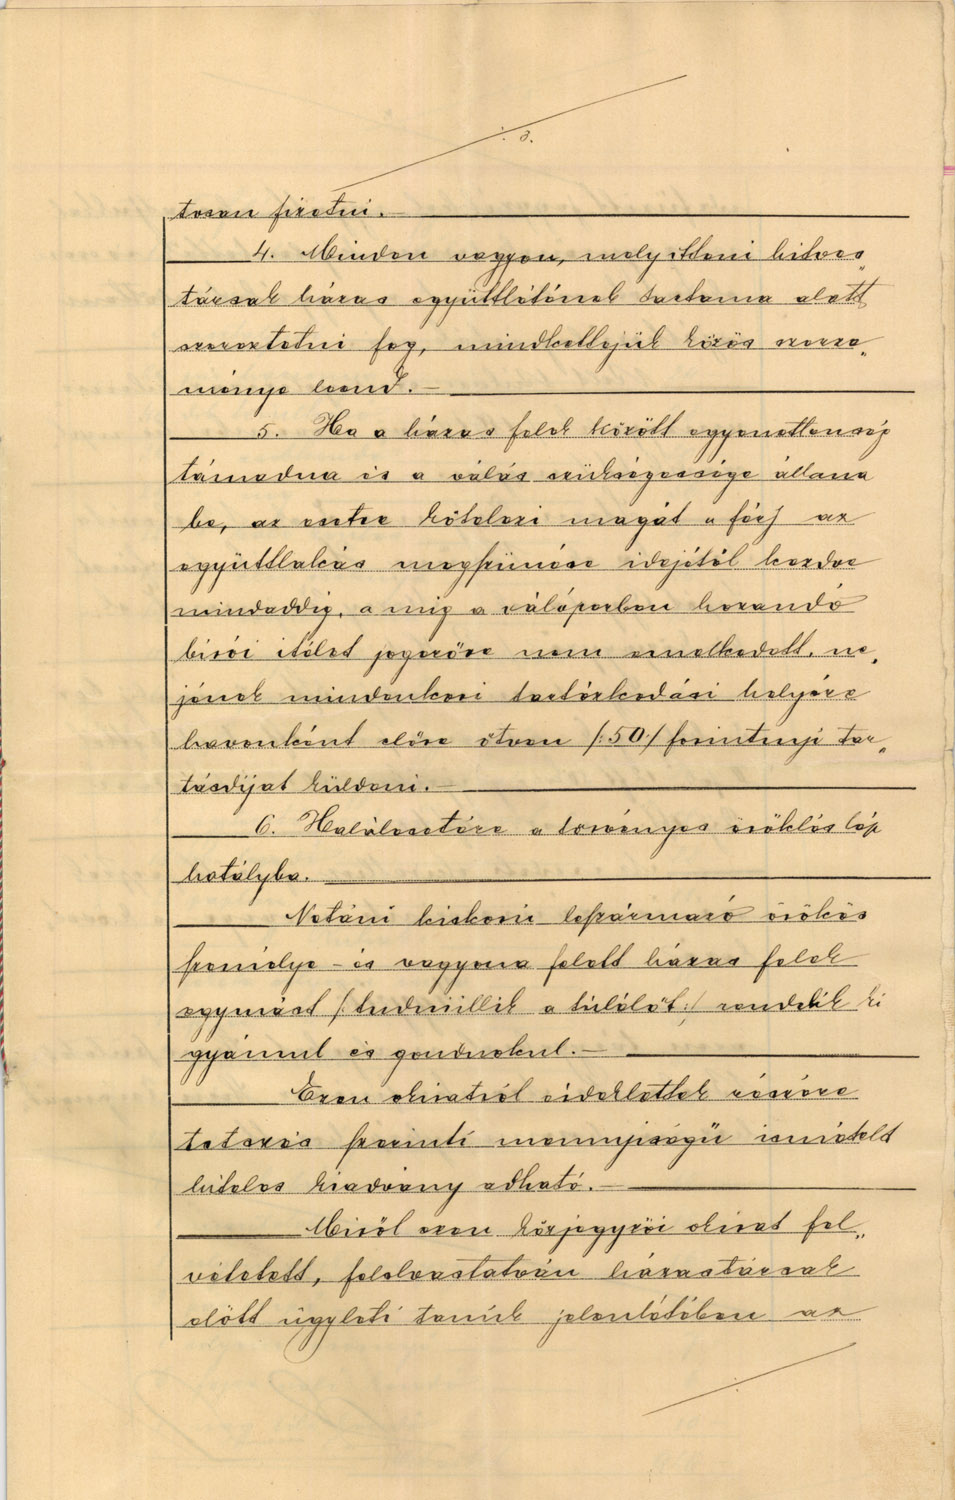 . 3.
tosan fizetni.—
4. Minden vagyon, mely itteni hitves„
társak házas együttlétének tartama alatt
szereztetni fog, mindkettejük közös szerze„
ménye leend.—
5. Ha a házas felek között egyenetlenség
támadna és a válás szükségessége állana
be, az esetre kötelezi magát a férj az
együttlakás megszünése idejétől kezdve
mindaddig, a mig a válóperben hozandó
birói itélet jogerőre nem emelkedett, ne„
jének mindenkori tartózkodási helyére
havonként előre ötven /:50:/ forintnyi tar„
tásdíjat küldeni.—
6. Halálesetére a törvényes öröklés lép
hatályba.
Netáni kiskorú leszármazó örökös
személye – és vagyona felett házas felek
egymást /:tudniillik a túlélőt:/ rendelik ki
gyámul és gondnokul.—
Ezen okiratról érdeklettek részére
tetszés szerinti mennyiségü ismételt
hiteles kiadvány adható.—
Miről ezen közjegyzői okirat fel„
vétetett, felolvastatván házastársak
előtt ügyleti tanúk jelenlétében az